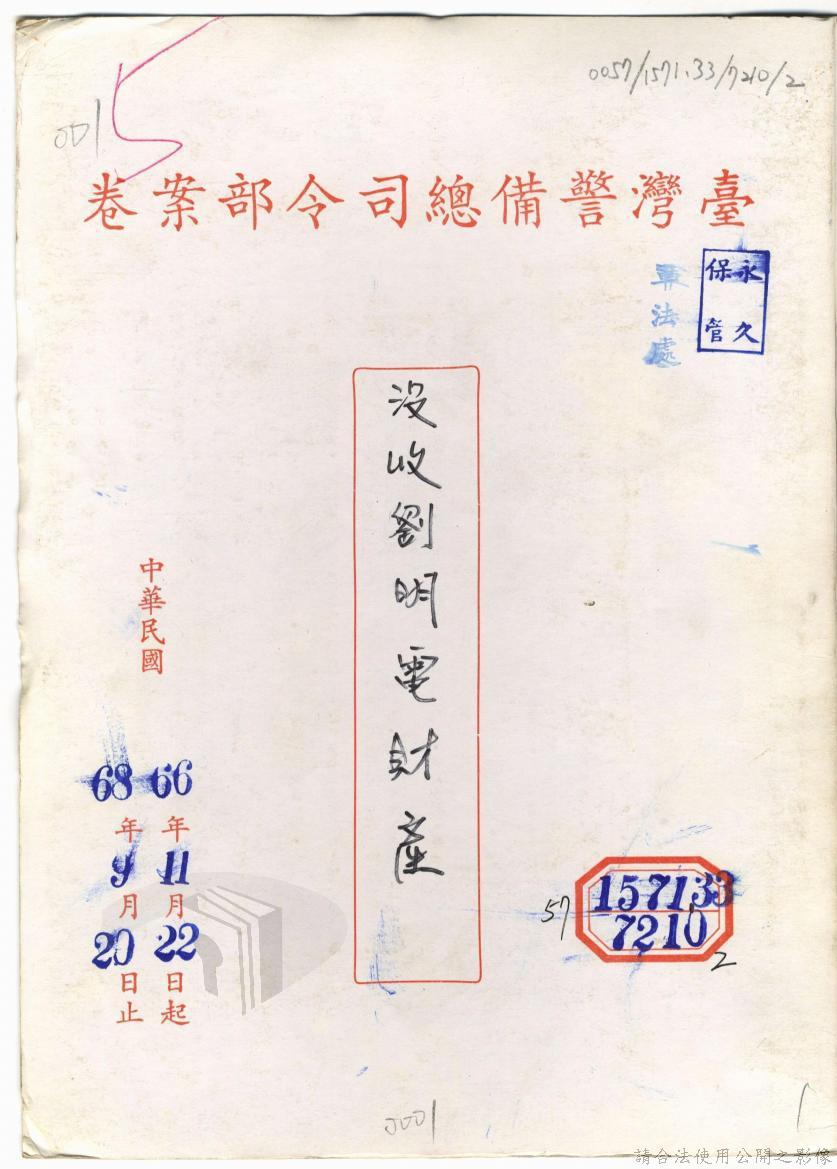 0057/1571.33/7210/2
001
5
臺灣警備總司令部案卷
永久
保管
軍法處
沒收劉明電財產
中華民國
66年11月22日起
68年9月20日止
57
157133
7210
2
0001
請合法使用公開之影像